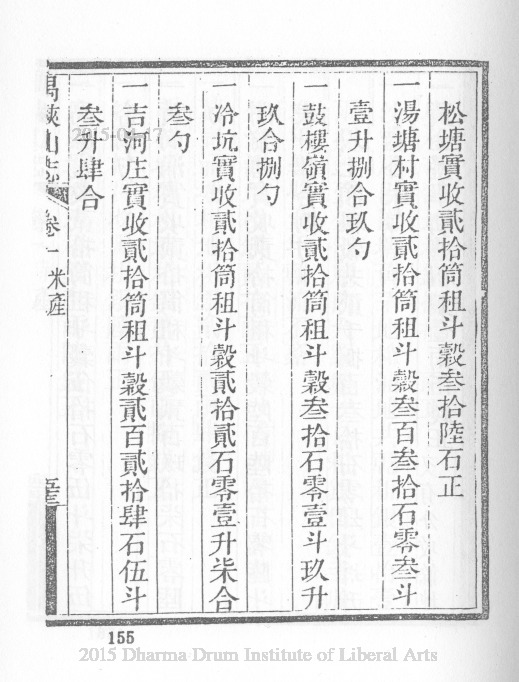 松塘實收貳拾筒租斗穀叁拾陸石正
一湯塘村實收貳拾筒租斗穀叁百叁拾石零叁斗
壹升捌合玖勺
一鼓樓嶺實收貳拾筒租斗穀叁拾石零壹斗玖升
玖合捌勺
一冷坑實收貳拾筒租斗穀貳拾貳石零壹升柒合
叁勺
一吉河庄實收貳拾筒租斗穀貳百貳拾肆石伍斗
叁升肆合
山志 卷一 米產
155
2015-04-17
2015 Dharma Drum Institute of Liberal Arts